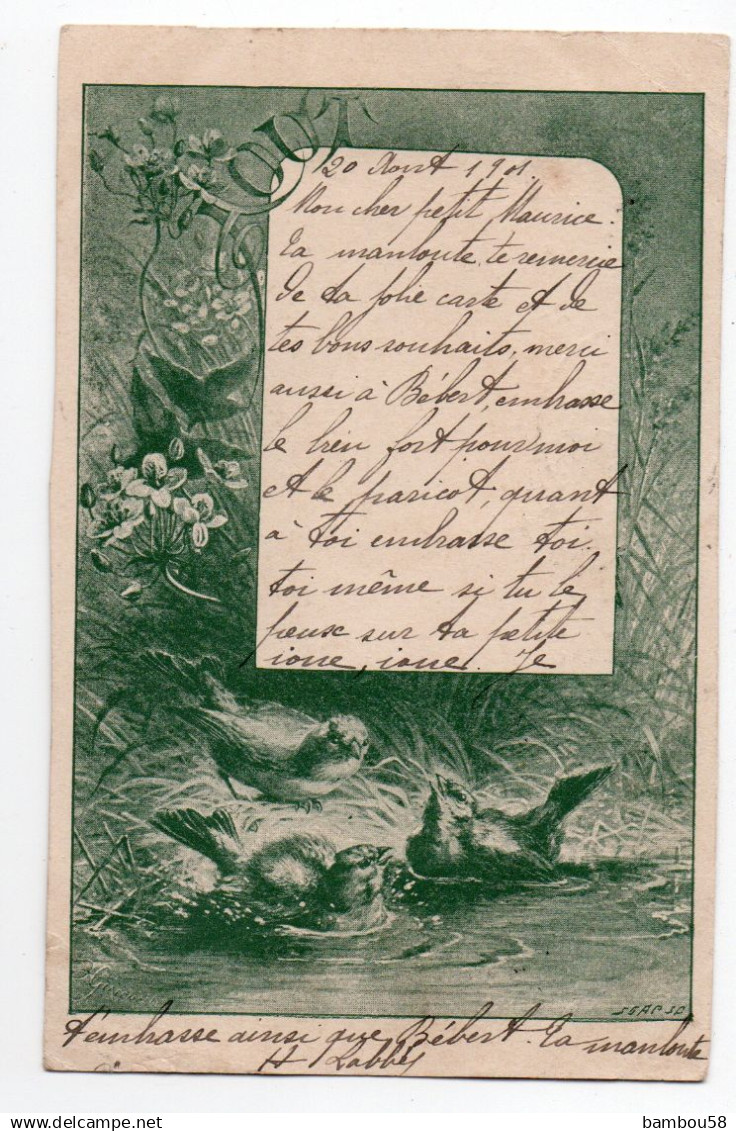 AOUT
20 Aout 1901
Mon cher petit Maurice.
Ta manloute, te remercie
de ta jolie carte et de
tes bons souhaits, merci
aussi à Bébert, embrasse
le bien fort pour moi
et le paricot, quant
à toi embrasse toi
toi même si tu le
peux sur ta petite
joue, joue. Je
t'embrasse ainsi que Bébert. Ta manloute
H Labbé
SGAP SC
Delcampe.net
bambou58